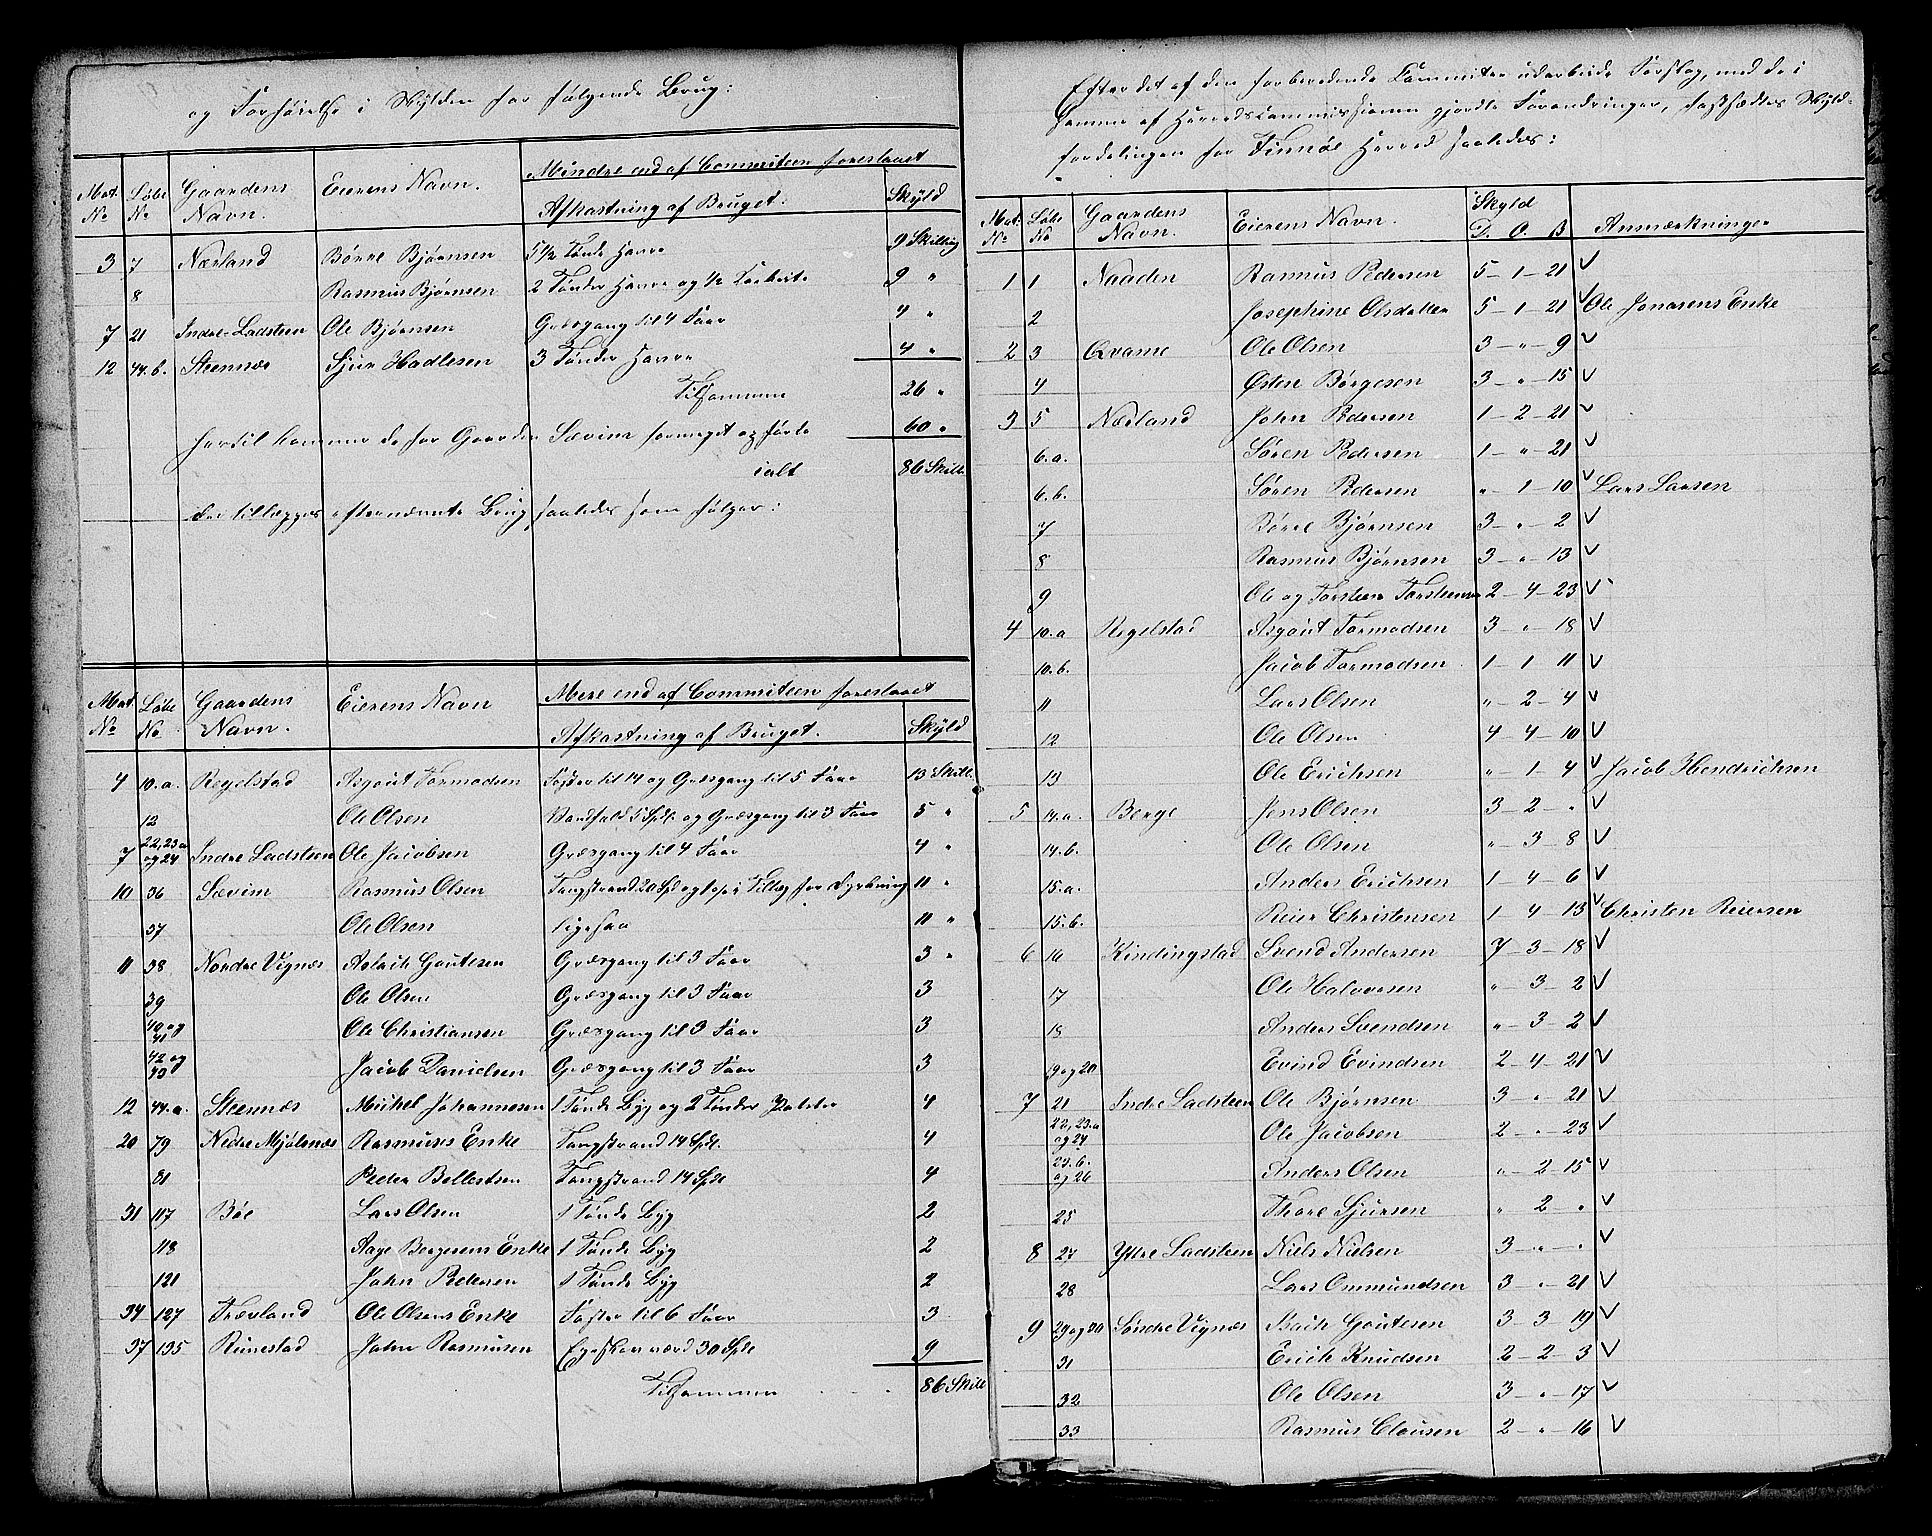 og Forhøielse i Skylden for følgende Brug:
Mat. No Løbe No Gaardens Navn. Eierens Navn. Mindre end af Commiteen foreslaaet
Afkastning af Bruget: Skyld
3 7 Nærland Børre Bjørnsen 5 1/2 Tønde Havre 9 Skilling
8 Rasmus Bjørnsen 2 Tønder Havre og 1/2 9 "
7 21 Indre Ladsteen Ole Bjørnsen Græsgang til 4 Faar 4 "
12 44.b. Steensnæs Sjur Hadlesen 3 Tønder Havre 4 "
Tilsammen 26 "
hertil kommer de for Gaarden Sævim formeget opførte 60 "
ialt 86 Skill.
der tillægges efternævnte Brug saaledes som følger:
Mat. No Løbe No Gaardens Navn. Eierens Navn Mere end af Commiteen foreslaaet
Afkastning af Bruget. Skyld
4 10.a. Regelstad Asgout Tormodsen Foster til 14 og Græsgang til 5 Faar 13 Skill.
12 Ole Olsen 5 Spd. og Græsgang til 3 Faar 5 "
7 22, 23a og 24 Indre Ladsteen Ole Jacobsen Græsgang til 4 Faar 4 "
10 36 Sævim Rasmus Olsen Tangstrand 20 Spd og i Tillæg for Dyrkning 11 "
37 Ole Olsen ligesaa 11 "
11 38 Nordre Vignæs Aslach Goutesen Græsgang til 3 Faar 3 "
39 Ole Olsen Græsgang til 3 Faar 3
40 og 41 Ole Christiansen Græsgang til 3 Faar 3
42 og 43 Jacob Danielsen Græsgang til 3 Faar 3
12 44.a. Steensnæs Michel Johannesen 1 Tønde Byg og 2 Tønder Poteter 4
20 79 Nedre Mjølsnæs Rasmuses Enke Tangstrand 14 Spd. 4
81 Peder Bellestsen Tangstrand 14 Spd 4
31 117 Bøe Lars Olsen 1 Tønde Byg 2
118 Aage Bergesens Enke 1 Tønde Byg 2
121 John Pedersen 1 Tønde Byg 2
34 127 Frøvland Ole Olsens Enke Foster til 6 Faar 3
37 135 Reinestad John Rasmusen Egeskov værd 30 Spd 9
Tilsammen 86 Skill
Efter det af den forberedende Committee udarbeide Forslag, med de i
samme af Herredscommissionen gjordte Forandringer, fastsættes Skyld-
fordelingen for Finnøe Herred saaledes:
Mat. No Løbe No Gaardens Navn. Eierens Navn. Skyld D. O. S Anmærkninger
1 1 Naaden Rasmus Pedersen 5 - 1 - 21 ✓
2 Josephine Olsdatter 5 - 1 - 21 ✓ Ole Jonasens Enke
2 3 Qvame Ole Olsen 3 - " - 9 ✓
4 Østen Børgesen 3 - " - 15 ✓
3 5 Nærland John Pedersen 1 - 2 - 21 ✓
6.a. Søren Pedersen 1 - " - 21 ✓
6.b. Søren Pedersen " - 1 - 10 ✓ Lars Larsen
7 Børre Bjørnsen 3 - " - 2 ✓
8 Rasmus Bjørnsen 3 - " - 13 ✓
9 Ole og Torsteen Torsteensen 2 - 4 - 23 ✓
4 10.a Regelstad Asgout Tormodsen 3 - " - 18 ✓
10.b. Jacob Tormodsen 1 - 1 - 11 ✓
11 Lars Olsen " - 2 - 4 ✓
12 Ole Olsen 4 - 4 - 10 ✓
13 Ole Erichsen " - 1 - 4 ✓ Jacob Hendrichsen
5 14.a. Berge Jens Olsen 3 - 2 - " ✓
14.b. Ole Olsen " - 3 - 8 ✓
15.a. Anders Erichsen 1 - 4 - 6 ✓
15.b. Reier Christensen 1 - 4 - 13 ✓ Christen Reiersen
6 16 Kindingstad Svend Andersen 7 - 3 - 18 ✓
17 Ole Halvorsen " - 3 - 2 ✓
18 Anders Svendsen " - 3 - 2 ✓
19 og 20 Evind Evindsen 2 - 4 - 21 ✓
7 21 Indre Ladsteen Ole Bjørnsen 3 " - 21 ✓
22, 23.a og 24 Ole Jacobsen 2 - " - 23 ✓
23.b. og 26 Anders Olsen " - 2 - 15 ✓
25 Thore Sjursen " 2 - " ✓
8 27 Yttre Ladsteen Niels Nielsen 3 - " - " ✓
28 Lars Ommundsen 3 - " - 21 ✓
9 29 og 30 Søndre Vignæs Bach Goutesen 3 - 3 - 19 ✓
31 Erich Knudsen 2 - 2 - 3 ✓
32 Ole Olsen 3 - " - 17 ✓
33 Rasmus Clausen 2 - " - 16 ✓